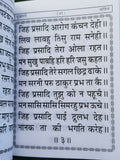 जिह प्रसादि आरोग कंचन देही
लिव लावहु तिसु राम सनेही
जिह प्रसादि तेरा ओला रहत
मन सुखु पावहि हरि हरि जसु कहत
जिह प्रसादि तेरे सगल छिद्र ढाके
मन सरनी परु ठाकुर प्रभ ता कै
जिह प्रसादि तुझु को न पहूचै
मन सासि सासि सिमरहु प्रभ ऊचे
जिह प्रसादि पाई द्रुलभ देह
नानक ता की भगति करेह
॥३॥